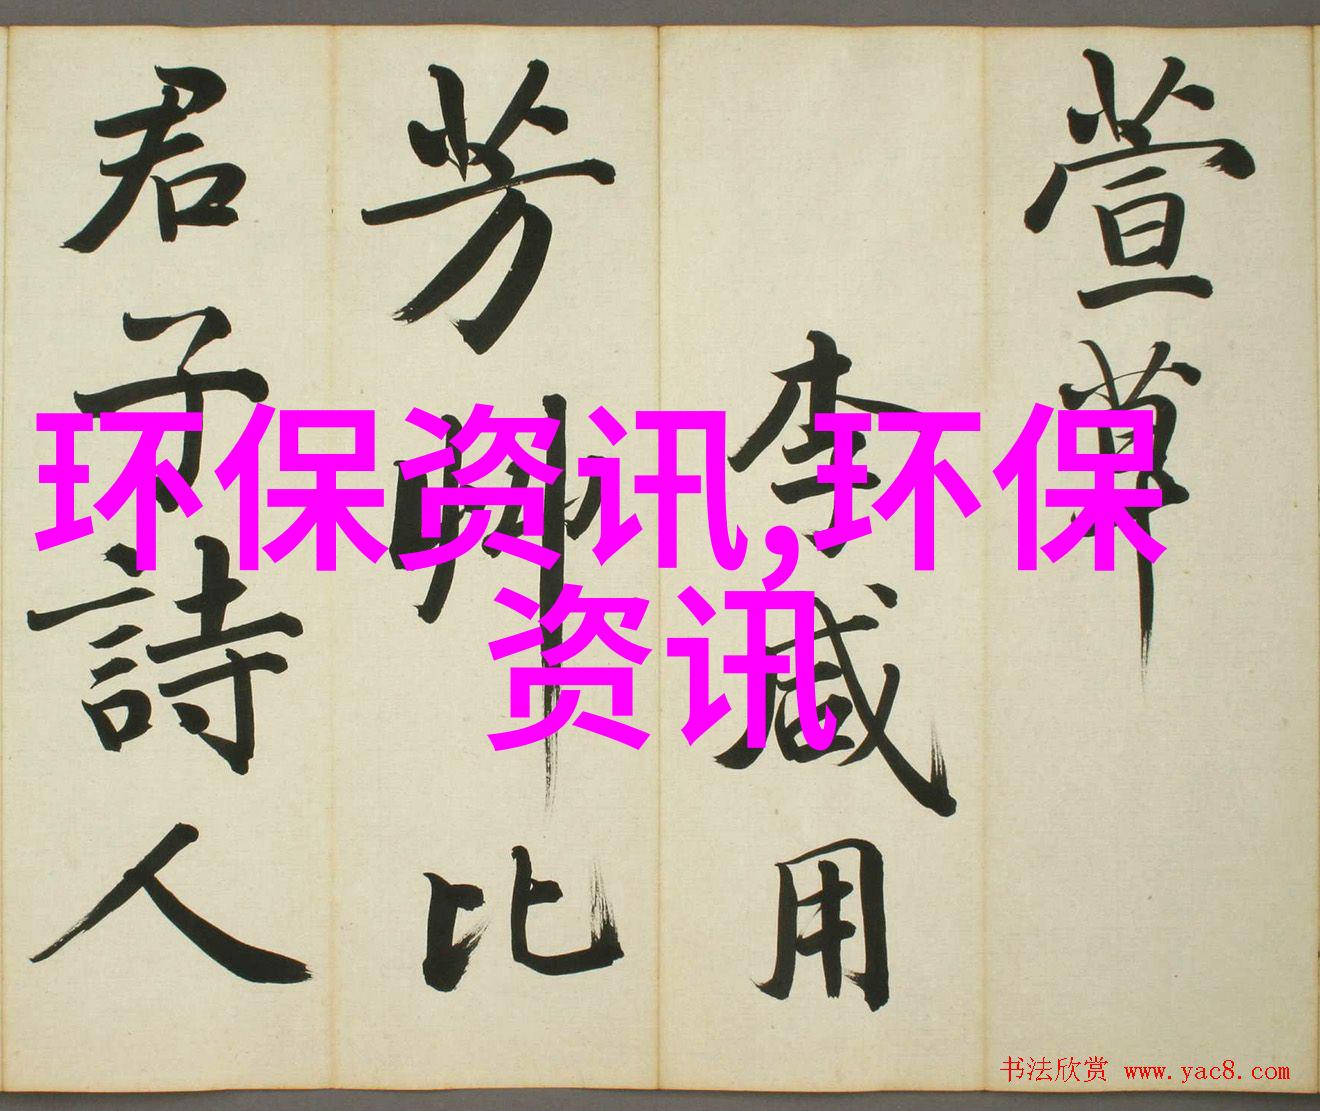 萱草
李咸用
芳艸比
君子詩人
环保资讯,环保
资讯
书法欣赏 www.yac8.com